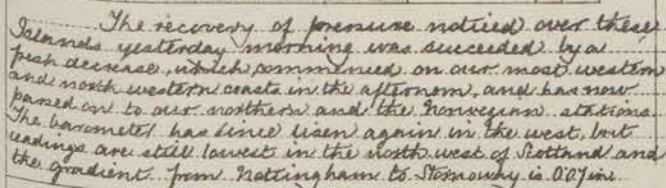 The recovery of pressure noticed over these
Islands yesterday morning was succeeded by a
fresh decrease, which commenced on our most western
and north western coasts in the afternoon, and has now
passed on to our northern and the Norwegian stations.
The barometer has since risen again in the west, but
readings are still lowest in the north west of Scotland and
the gradient from Nottingham to Stornoway is 0.07 in.